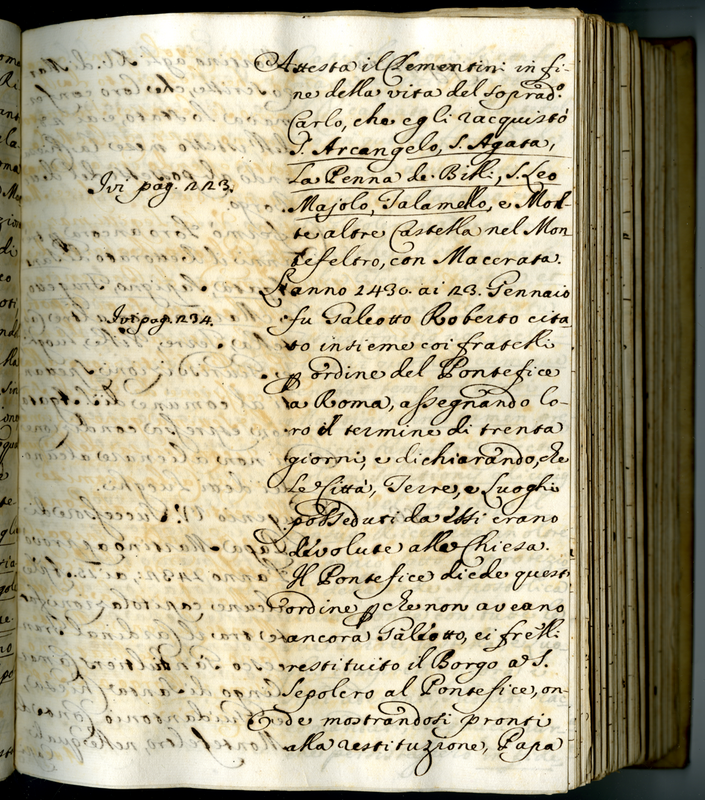 Attesta il Clementini in fi-
ne della vita del soprad.º
Carlo, che egli racquistò
S. Arcangelo, S. Agata,
La Penna de Billi, S. Leo
Ivi pag. 223.
Majolo, Talamello, e Mol-
te altre Castella nel Mon
tefeltro, con Macerata.
L'anno 1430. ai 23. Gennaio
Ivi pag. 234.
fu Galeotto Roberto cita-
to insieme coi fratelli
p ordine del Pontefice
a Roma, assegnando lo-
ro il termine di trenta
giorni, e dichiarando, che
Le Città, Terre, e Luoghi
posseduti da essi erano
divolute alla Chiesa.
Il Pontefice diede quest'
ordine p che non aveano
ancora Galeotto, ei frelli
restituito il Borgo a S.
Sepolcro al Pontefice, on-
de mostrandosi pronti
alla restituzione, Papa